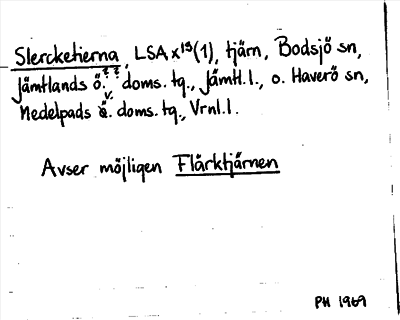 Slercketierna, LSA x¹⁵(1), tjärn, Bodsjö sn,
Jämtlands ö. doms. tg., Jämtl. l., o. Haverö sn,
Medelpads v. doms. tg., Vrnl. l.
Avser möjligen Flärktjärnen
PH 1969